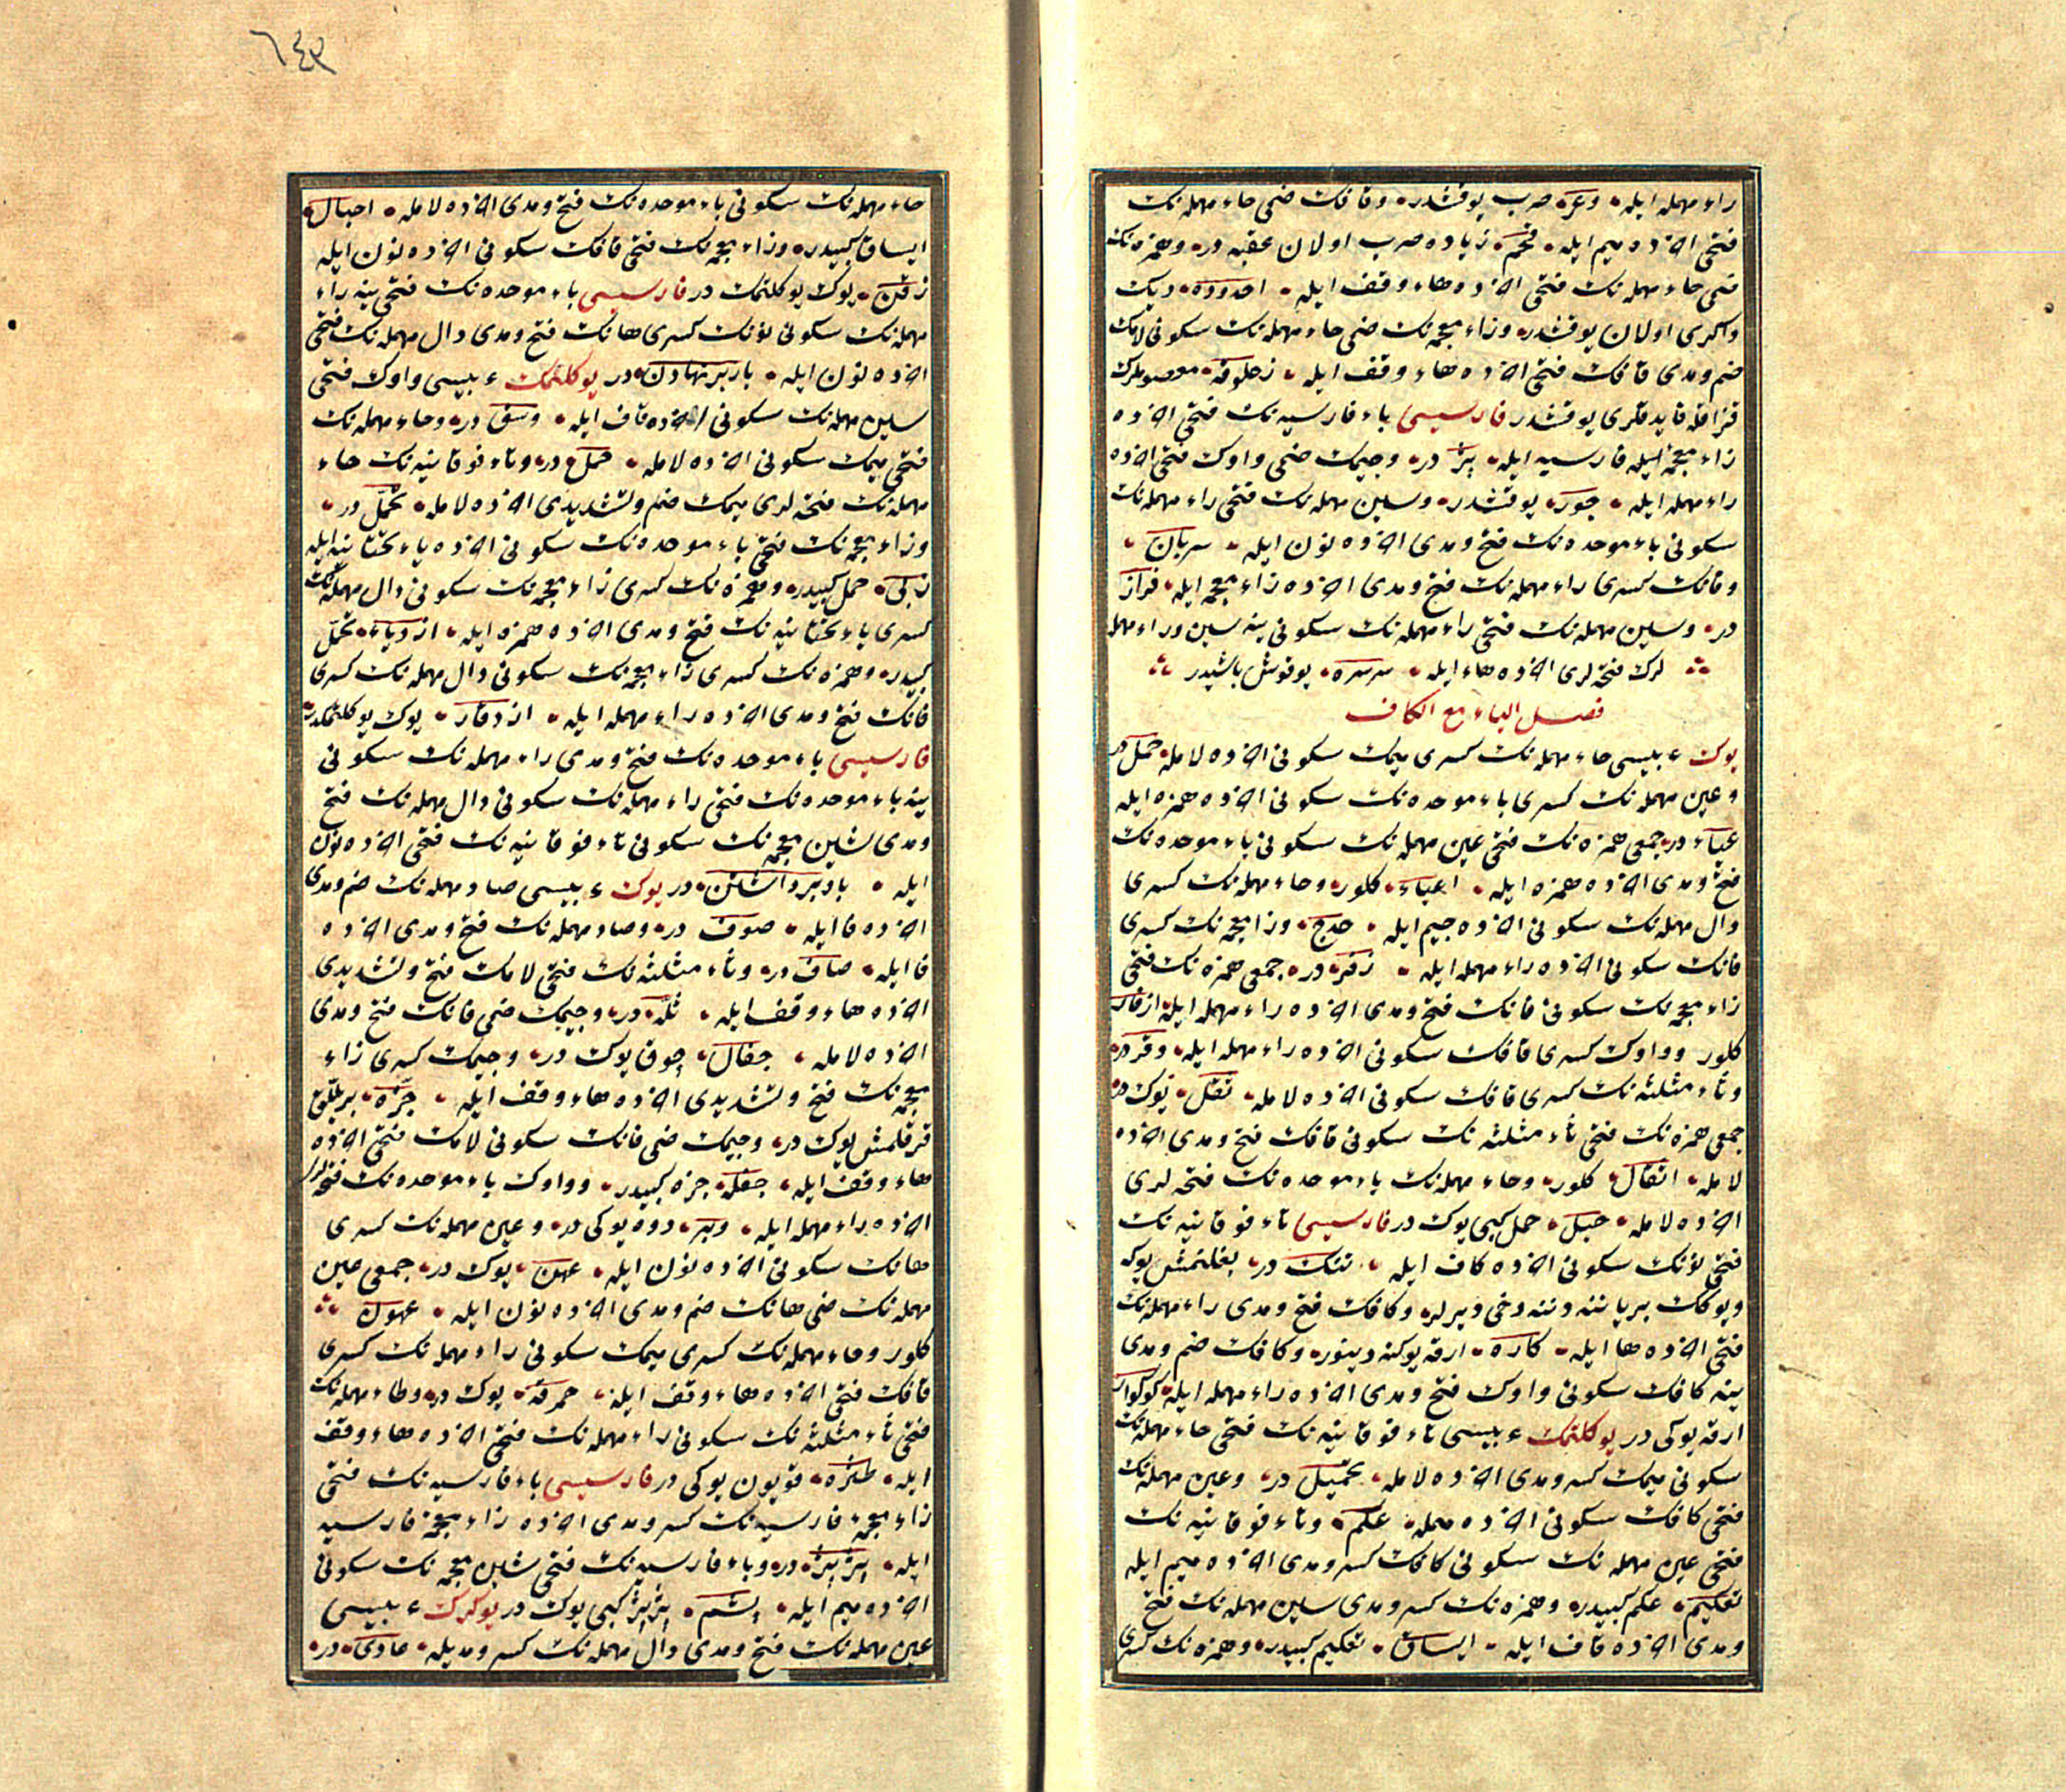 راء مهمله ایله وعر صرب یوقشدر وقافك ضمی حاء مهمله‌نك
فتحی آخرده میم ایله قحم زیاده صرب اولان عقبه در وهمزه‌نك
ضمی حاء مهمله‌نك فتحی آخرده هاء وقف ایله احدوده دیك
واکری اولان یوقشدر وزاء معجمه‌نك ضمی حاء مهمله‌نك سکونی لامك
ضم ومدی قافك فتحی آخرده هاء وقف ایله زحلوقه
یوقشدر فارسیسی باء فارسیه‌نك فتحی آخرده
زاء معجمهٔ فارسیه ایله پژ در وجیمك ضمی واوك فتحی آخرده
راء مهمله ایله جور یوقشدر وسین مهمله‌نك فتحی راء مهمله‌نك
سکونی باء موحده‌نك فتح ومدی آخرده نون ایله سربان
وفانك کسری راء مهمله‌نك فتح ومدی آخرده زاء معجمه ایله فراز
در وسین مهمله‌نك فتحی راء مهمله‌نك سکونی ینه سین وراء مهمله
لرك فتحه‌لری آخرده هاء ایله سرسره یوقوش باشیدر
فصل الیاء مع الکاف
یوك عربیسی حاء مهمله‌نك کسری میمك سکونی آخرده لامله حمل در
وعین مهمله‌نك کسری باء موحده‌نك سکونی آخرده همزه ایله
عبأ در جمعی همزه‌نك فتحی عین مهمله‌نك سکونی باء موحده‌نك
فتح ومدی آخرده همزه ایله اعباء کلور وحاء مهمله‌نك کسری
دال مهمله‌نك سکونی آخرده جیم ایله حدج وزا معجمه‌نك کسری
فانك سکونی آخرده راء مهمله ایله زفر در جمعی همزه‌نك فتحی
زاء معجمه‌نك سکونی فانك فتح ومدی آخرده راء مهمله ایله ازفار
کلور وواوك کسری قافك سکونی آخرده راء مهمله ایله وقر در
وثاء مثلثه‌نك کسری قافك سکونی آخرده لامله ثقل یوك در
جمعی همزه‌نك فتحی ثاء مثلثه‌نك سکونی قافك فتح ومدی آخرده
لامله اثقال کلور وحاء مهمله‌نك باء موحده‌نك فتحه‌لری
آخرده لامله حبل حمل کبی یوك در فارسیسی تاء فوقانیه‌نك
فتحی نونك سکونی آخرده کاف ایله تنك در بغلنمش یوکه
ویوکك بر یاننه دننه دخی دیرلر وکافك فتح ومدی راء مهمله‌نك
فتحی آخرده ها ایله کاره ارقه یوکنه دینور وکافك ضم ومدی
ینه کافك سکونی واوك فتح ومدی آخرده راء مهمله ایله کوکوار
ارقه یوکی در یوکلتمك عربیسی تاء فوقانیه‌نك فتحی حاء مهمله‌نك
سکونی میمك کسر ومدی آخرده لامله تحمیل در وعین مهمله‌نك
فتحی کافك سکونی آخرده میمله عکم وتاء فوقانیه‌نك
فتحی عین مهمله‌نك سکونی کافك کسر ومدی آخرده میم ایله
تعکیم عکم کبیدر وهمزه‌نك کسر ومدی سین مهمله‌نك فتح
ومدی آخرده قاف ایله ایساق تعکیم کبیدر وهمزه‌نك کسری
٦٤٣
حاء مهمله‌نك سکونی باء موحده‌نك فتح ومدی آخرده لامله احبال
ایساق کبیدر وزاء معجمه‌نك فتحی قافك سکونی آخرده نون ایله
زقن یوك یوکلتمك در فارسیسی باء موحده‌نك فتحی ینه راء
مهمله‌نك سکونی نونك کسری هانك فتح ومدی دال مهمله‌نك فتحی
آخرده نون ایله بار بر نهادن در یوکلتمك عربیسی واوك فتحی
سین مهمله‌نك سکونی آخرده قاف ایله وسق در وحاء مهمله‌نك
فتحی میمك سکونی آخرده لامله حمل در وتاء فوقانیه‌نك حاء
مهمله‌نك فتحه‌لری میمك ضم وتشدیدی آخرده لامله تحمّل در
وزاء معجمه‌نك فتحی باء موحده‌نك سکونی آخرده یاء تحتانیه ایله
زبی حمل کبیدر وهمزه‌نك کسری زاء معجمه‌نك سکونی دال مهمله‌نك
کسری یاء تحتانیه‌نك فتح ومدی آخرده همزه ایله ازدیاء تحمّل
کبیدر وهمزه‌نك کسری زاء معجمه‌نك سکونی دال مهمله‌نك کسری
فانك فتح ومدی آخرده راء مهمله ایله ازدفار یوك یوکلتمکدر
فارسیسی باء موحده‌نك فتح ومدی راء مهمله‌نك سکونی
ینه باء موحده‌نك فتحی راء مهمله‌نك سکونی دال مهمله‌نك فتح
ومدی شین معجمه‌نك سکونی تاء فوقانیه‌نك فتحی آخرده نون
ایله بار برداشتن در یوك عربیسی صاد مهمله‌نك ضم ومدی
آخرده فا ایله صوف در وصاد مهمله‌نك فتح ومدی آخرده
فا ایله صاف در وثاء مثلثه‌نك فتحی لامك فتح وتشدیدی
آخرده هاء وقف ایله ثلّه در وجیمك ضمی فانك فتح ومدی
آخرده لامله جفال چوق یوك در وجیمك کسری زاء
معجمه‌نك فتح وتشدیدی آخرده هاء وقف ایله جزّه
قرقلمش یوك در وجیمك ضمی فانك سکونی لامك فتحی آخرده
هاء وقف ایله جفله جزه کبیدر وواوك باء موحده‌نك فتحه‌لری
آخرده راء مهمله ایله وبر دوه یوکی در وعین مهمله‌نك کسری
هانك سکونی آخرده نون ایله عهن یوك در جمعی عین
مهمله‌نك ضمی هانك ضم ومدی آخرده نون ایله عهون
کلور وحاء مهمله‌نك کسری میمك سکونی راء مهمله‌نك کسری
قافك فتحی آخرده هاء وقف ایله حمرقه یوك در وطاء مهمله‌نك
فتحی ثاء مثلثه‌نك سکونی راء مهمله‌نك فتحی آخرده هاء وقف
ایله طثره قویون یوکی در فارسیسی باء فارسیه‌نك فتحی
زاء معجمهٔ فارسیه‌نك کسر ومدی آخرده زاء معجمهٔ فارسیه
ایله در وباء فارسیه‌نك فتحی شین معجمه‌نك سکونی
آخرده میم ایله پشم کبی یوك در یوکرك عربیسی
عین مهمله‌نك فتح ومدی دال مهمله‌نك کسر ومدیله عادی در